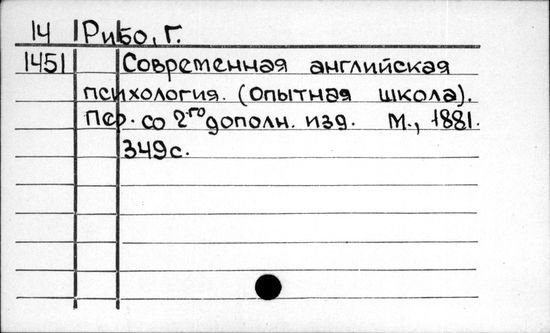 14 Рибо, Г.
1451 Современная английская
психология. (опытная школа).
Пер. со 2го дополн. изд. М., 1881.
349 с.